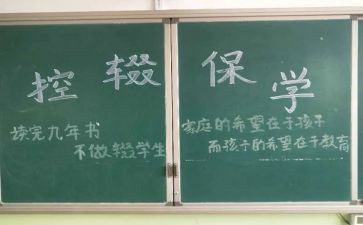 控辍保学
读完九年书
不做辍学生
家庭的希望在于孩子
而孩子的希望在于教育